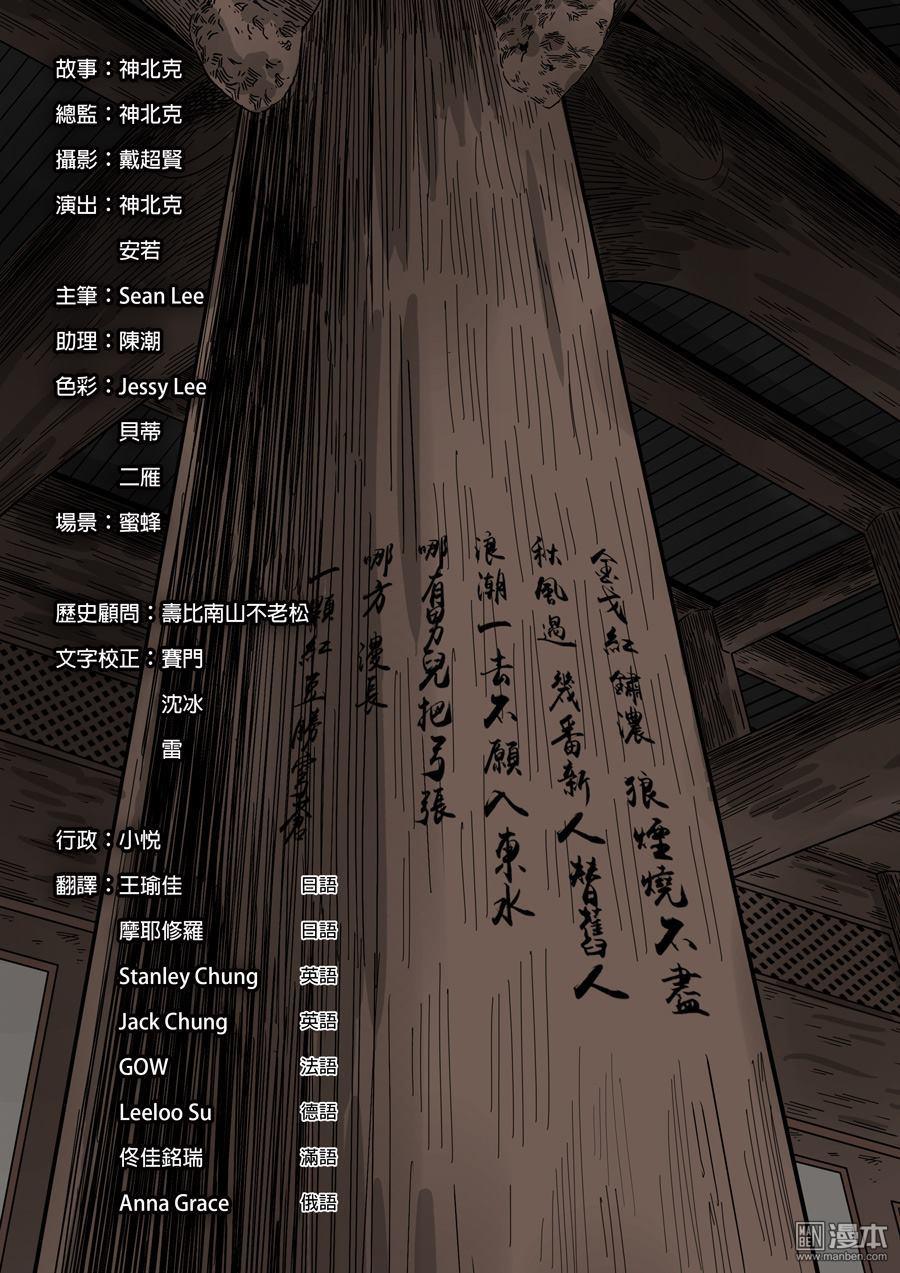 故事：神北克
總監：神北克
攝影：戴超賢
演出：神北克
安若
主筆：Sean Lee
助理：陳潮
色彩：Jessy Lee
貝蒂
二雁
場景：蜜蜂
歷史顧問：壽比南山不老松
文字校正：賽門
沈冰
雷
行政：小悅
翻譯：王瑜佳 日語
摩耶修羅 日語
Stanley Chung 英語
Jack Chung 英語
GOW 法語
Leeloo Su 德語
佟佳銘瑞 滿語
Anna Grace 俄語
金戈紅鏽濃 狼煙燒不盡
秋風過 幾番新人替舊人
浪潮一去不願入東水
哪有男兒把弓張
哪方漫長
一顆紅豆勝雪蒼
MANBEN 漫本
www.manben.com